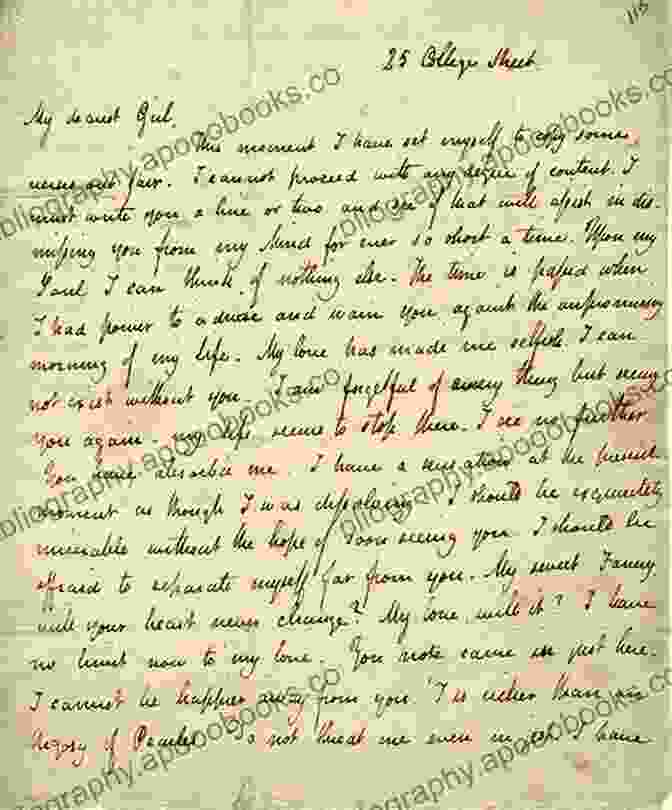 115
25 College Street.
My dearest Girl,
This moment I have set myself to copy some
verses out fair. I cannot proceed with any degree of content. I
must write you a line or two and see if that will assist in dis-
missing you from my Mind for ever so short a time. Upon my
Soul I can think of nothing else. The time is passed when
I had power to advise and warn you against the unpromising
morning of my Life. My love has made me selfish. I can
not exist without you. I am forgetful of every thing but seeing
you again. my Life seems to stop there. I see no further.
You have absorb'd me. I have a sensation at the present
moment as though I was dissolving. I should be exquisitely
miserable without the hope of soon seeing you. I should be
affraid to separate myself far from you. My sweet Fanny,
will your heart never change? My love, will it? I have
no limit now to my love. You note came in just here.
I cannot be happier away from you. 'T is richer than an
Argosy of Pearles. Do not threat me even in jest. I have
bliography.apooobooks.co
bliography.apooobooks.co
bliography.apooobooks.co
bliography.apooobooks.co
bliography.apooobooks.co
bliography.apooobooks.co